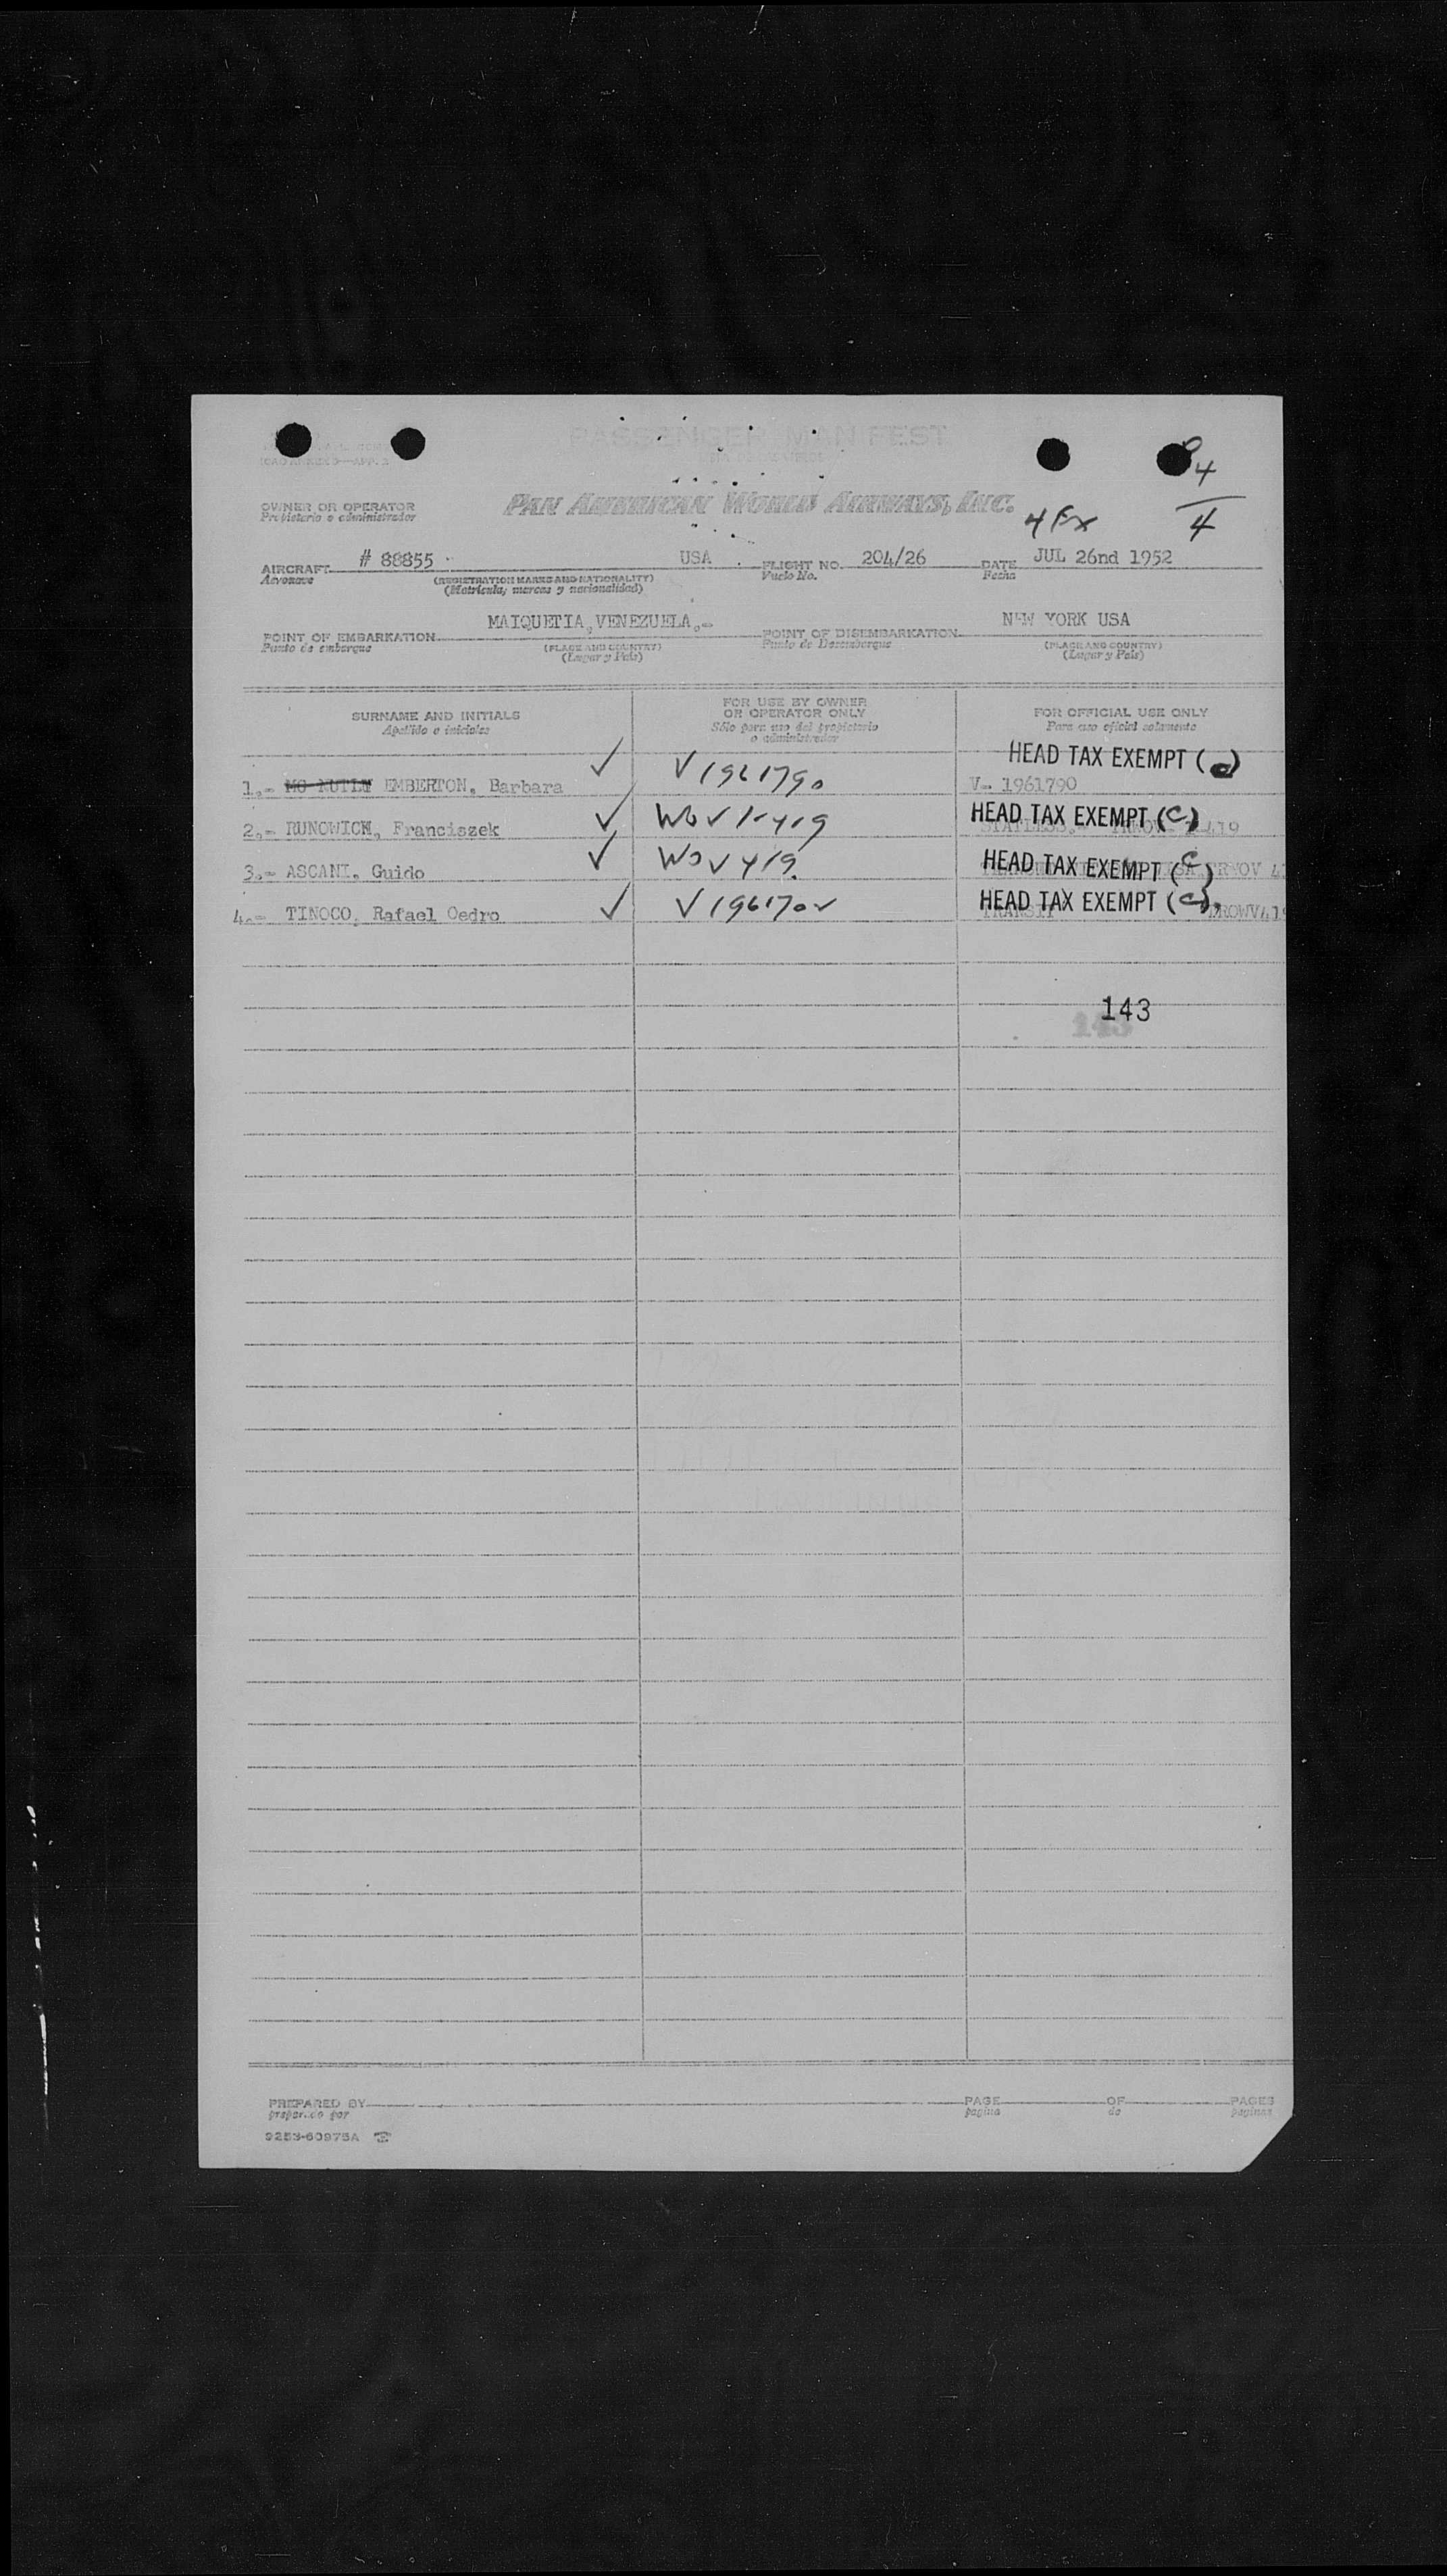 PASSENGER MANIFEST
OWNER OR OPERATOR
Propietario o administrador
PAN AMERICAN WORLD AIRWAYS, INC.
4 Ex
4
4
AIRCRAFT # 88855 USA FLIGHT NO. 204/26 DATE JUL 26nd 1952
Aeronave (REGISTRATION MARKS AND NATIONALITY) Vuelo No. Fecha
(Matrícula, marcas y nacionalidad)
POINT OF EMBARKATION MAIQUETIA, VENEZUELA,.- POINT OF DISEMBARKATION NEW YORK USA
Punto de embarque (PLACE AND COUNTRY) Punto de Desembarque (PLACE AND COUNTRY)
(Lugar y País) (Lugar y País)
SURNAME AND INITIALS FOR USE BY OWNER OR OPERATOR ONLY FOR OFFICIAL USE ONLY
Apellido e iniciales Sólo para uso del propietario o administrador Para uso oficial solamente
HEAD TAX EXEMPT (c)
1.- EMBERTON, Barbara ✓ V 1961790 V- 1961790
2.- RUNOWICH, Franciszek ✓ HEAD TAX EXEMPT (C)
3.- ASCANI, Guido ✓ HEAD TAX EXEMPT (C)
4.- TINOCO, Rafael Oedro ✓ V 1961702 HEAD TAX EXEMPT (C)
TRANSIT
143
143
PREPARED BY PAGE OF PAGES
preparado por pagina de paginas
9253-60975A